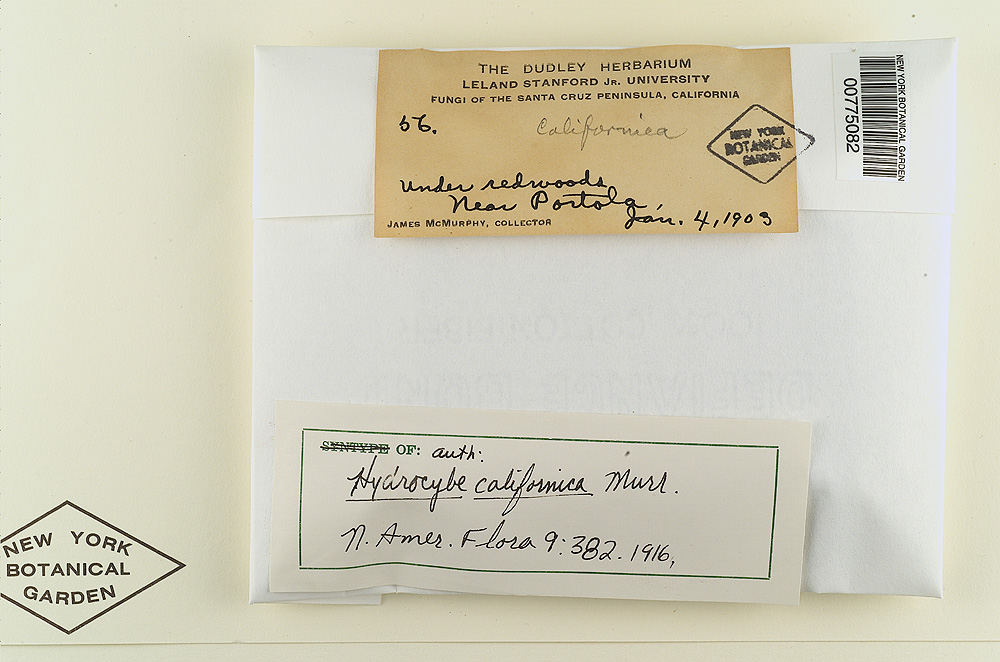 THE DUDLEY HERBARIUM
LELAND STANFORD JR. UNIVERSITY
FUNGI OF THE SANTA CRUZ PENINSULA, CALIFORNIA
56.
Californica
NEW YORK
BOTANICAL
GARDEN
Under redwoods
Near Portola,
Jan. 4, 1903
JAMES MCMURPHY, COLLECTOR
NEW YORK BOTANICAL GARDEN
00775082
SYNTYPE OF: auth:
Hydrocybe californica Murr.
N. Amer. Flora 9: 382. 1916,
NEW YORK
BOTANICAL
GARDEN